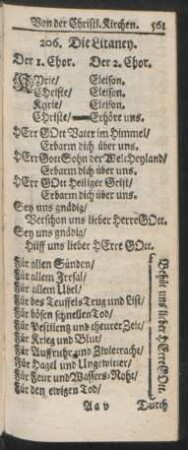 Von der Christl. Kirchen. 561
206. Die Litaney.
Der 1. Chor. Der 2. Chor.
KYrie/ Eleison.
Christe/ Eleison.
Kyrie/ Eleison.
Christe/ Erhöre uns.
HErr GOtt Vater im Himmel/
Erbarm dich über uns.
HErr Gott Sohn der Welt Heyland/
Erbarm dich über uns.
HErr GOtt Heiliger Geist/
Erbarm dich über uns.
Sey uns gnädig/
Verschon uns lieber Herre GOtt.
Sey uns gnädig/
Hilff uns lieber HErre GOtt.
Für allen Sünden/
Für allem Irrsal/
Für allem Übel/
Für des Teuffels Trug und List/
Für bösen schnellen Tod/
Für Pestilentz und theurer Zeit/
Für Krieg und Blut/
Für Auffruhr und Zwietracht/
Für Hagel und Ungewitter/
Für Feur und Wassers-Noht/
Für den ewigen Tod/
Behüt uns lieber HErre GOtt.
A a v Durch